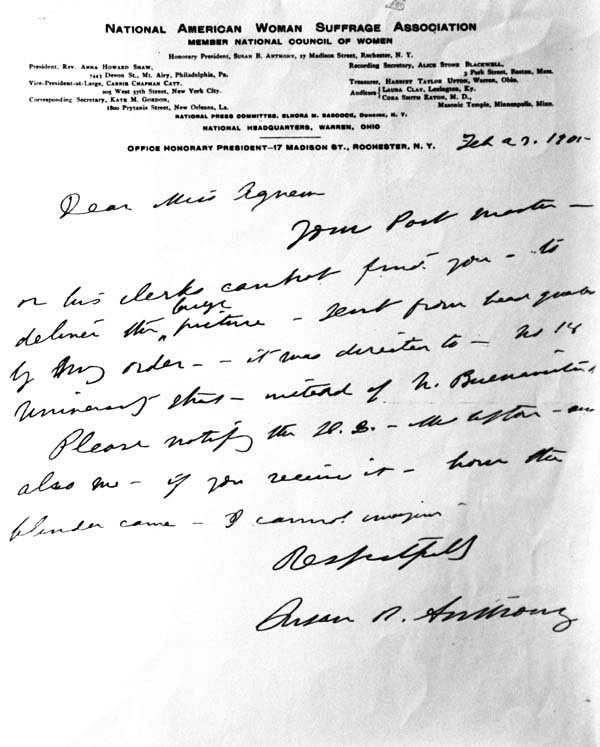 NATIONAL AMERICAN WOMAN SUFFRAGE ASSOCIATION
MEMBER NATIONAL COUNCIL OF WOMEN
Honorary President, SUSAN B. ANTHONY, 17 Madison Street, Rochester, N. Y.
President, REV. ANNA HOWARD SHAW,
7443 Devon St., Mt. Airy, Philadelphia, Pa.
Vice-President-at-Large, CARRIE CHAPMAN CATT,
205 West 57th Street, New York City.
Corresponding Secretary, KATE M. GORDON,
1800 Prytania Street, New Orleans, La.
Recording Secretary, ALICE STONE BLACKWELL,
3 Park Street, Boston, Mass.
Treasurer, HARRIET TAYLOR UPTON, Warren, Ohio.
Auditors { LAURA CLAY, Lexington, Ky.
CORA SMITH EATON, M. D.,
Masonic Temple, Minneapolis, Minn.
NATIONAL PRESS COMMITTEE, ELNORA M. BABCOCK, DUNKIRK, N. Y.
NATIONAL HEADQUARTERS, WARREN, OHIO
OFFICE HONORARY PRESIDENT—17 MADISON ST., ROCHESTER, N. Y.
Feb 27. 1905-
Dear Miss Agnew
Your Post master -
or his clerks cannot find you - to
deliver the large picture - sent from head quarters
by my order - - it was directed to - No 18
University - instead of N. Buenaventura
Please notify the - also me - if you receive it - how the
blunder came - I cannot imagine -
Respectfully
Susan B. Anthony